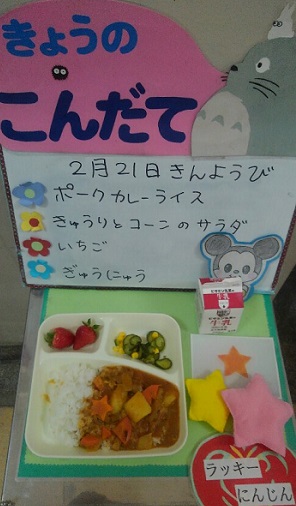 きょうの
こんだて
2月21日きんようび
ポークカレーライス
きゅうりとコーンのサラダ
いちご
ぎゅうにゅう
牛乳
ラッキー
にんじん